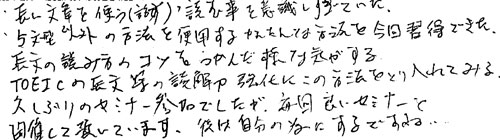 ・長い文章を使う(話す)、読む事を意識しすぎていた。
・以外の方法を使用するかんたんな方法を今回習得できた。
長文の読み方のコツをつかんだ様な気がする。
TOEICの長文等の読解力強化にこの方法をとり入れてみる。
久しぶりのセミナー参加でしたが、毎回良いセミナーを
開催して頂いています。後は自分の為にするですね…